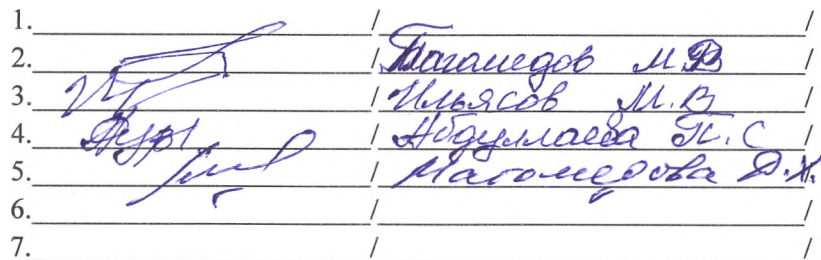 1. / /
2. / Багамедов М.В /
3. / Ильясов М.В /
4. / Абдуллаева П.С /
5. / Магомедова Д.Х. /
6. / /
7. / /